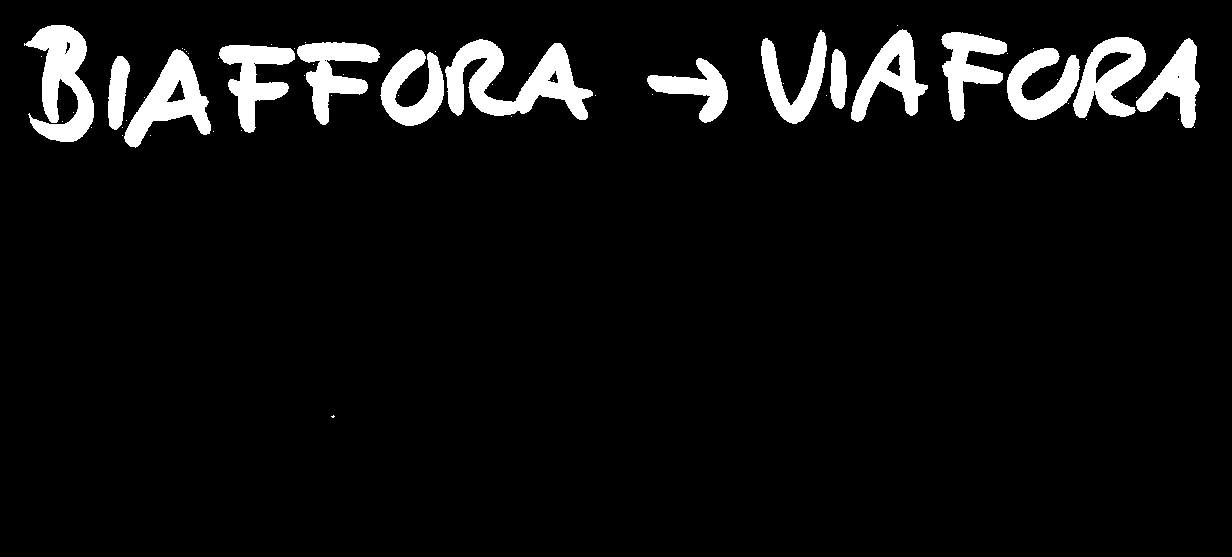 BIAFFORA → VIAFORA